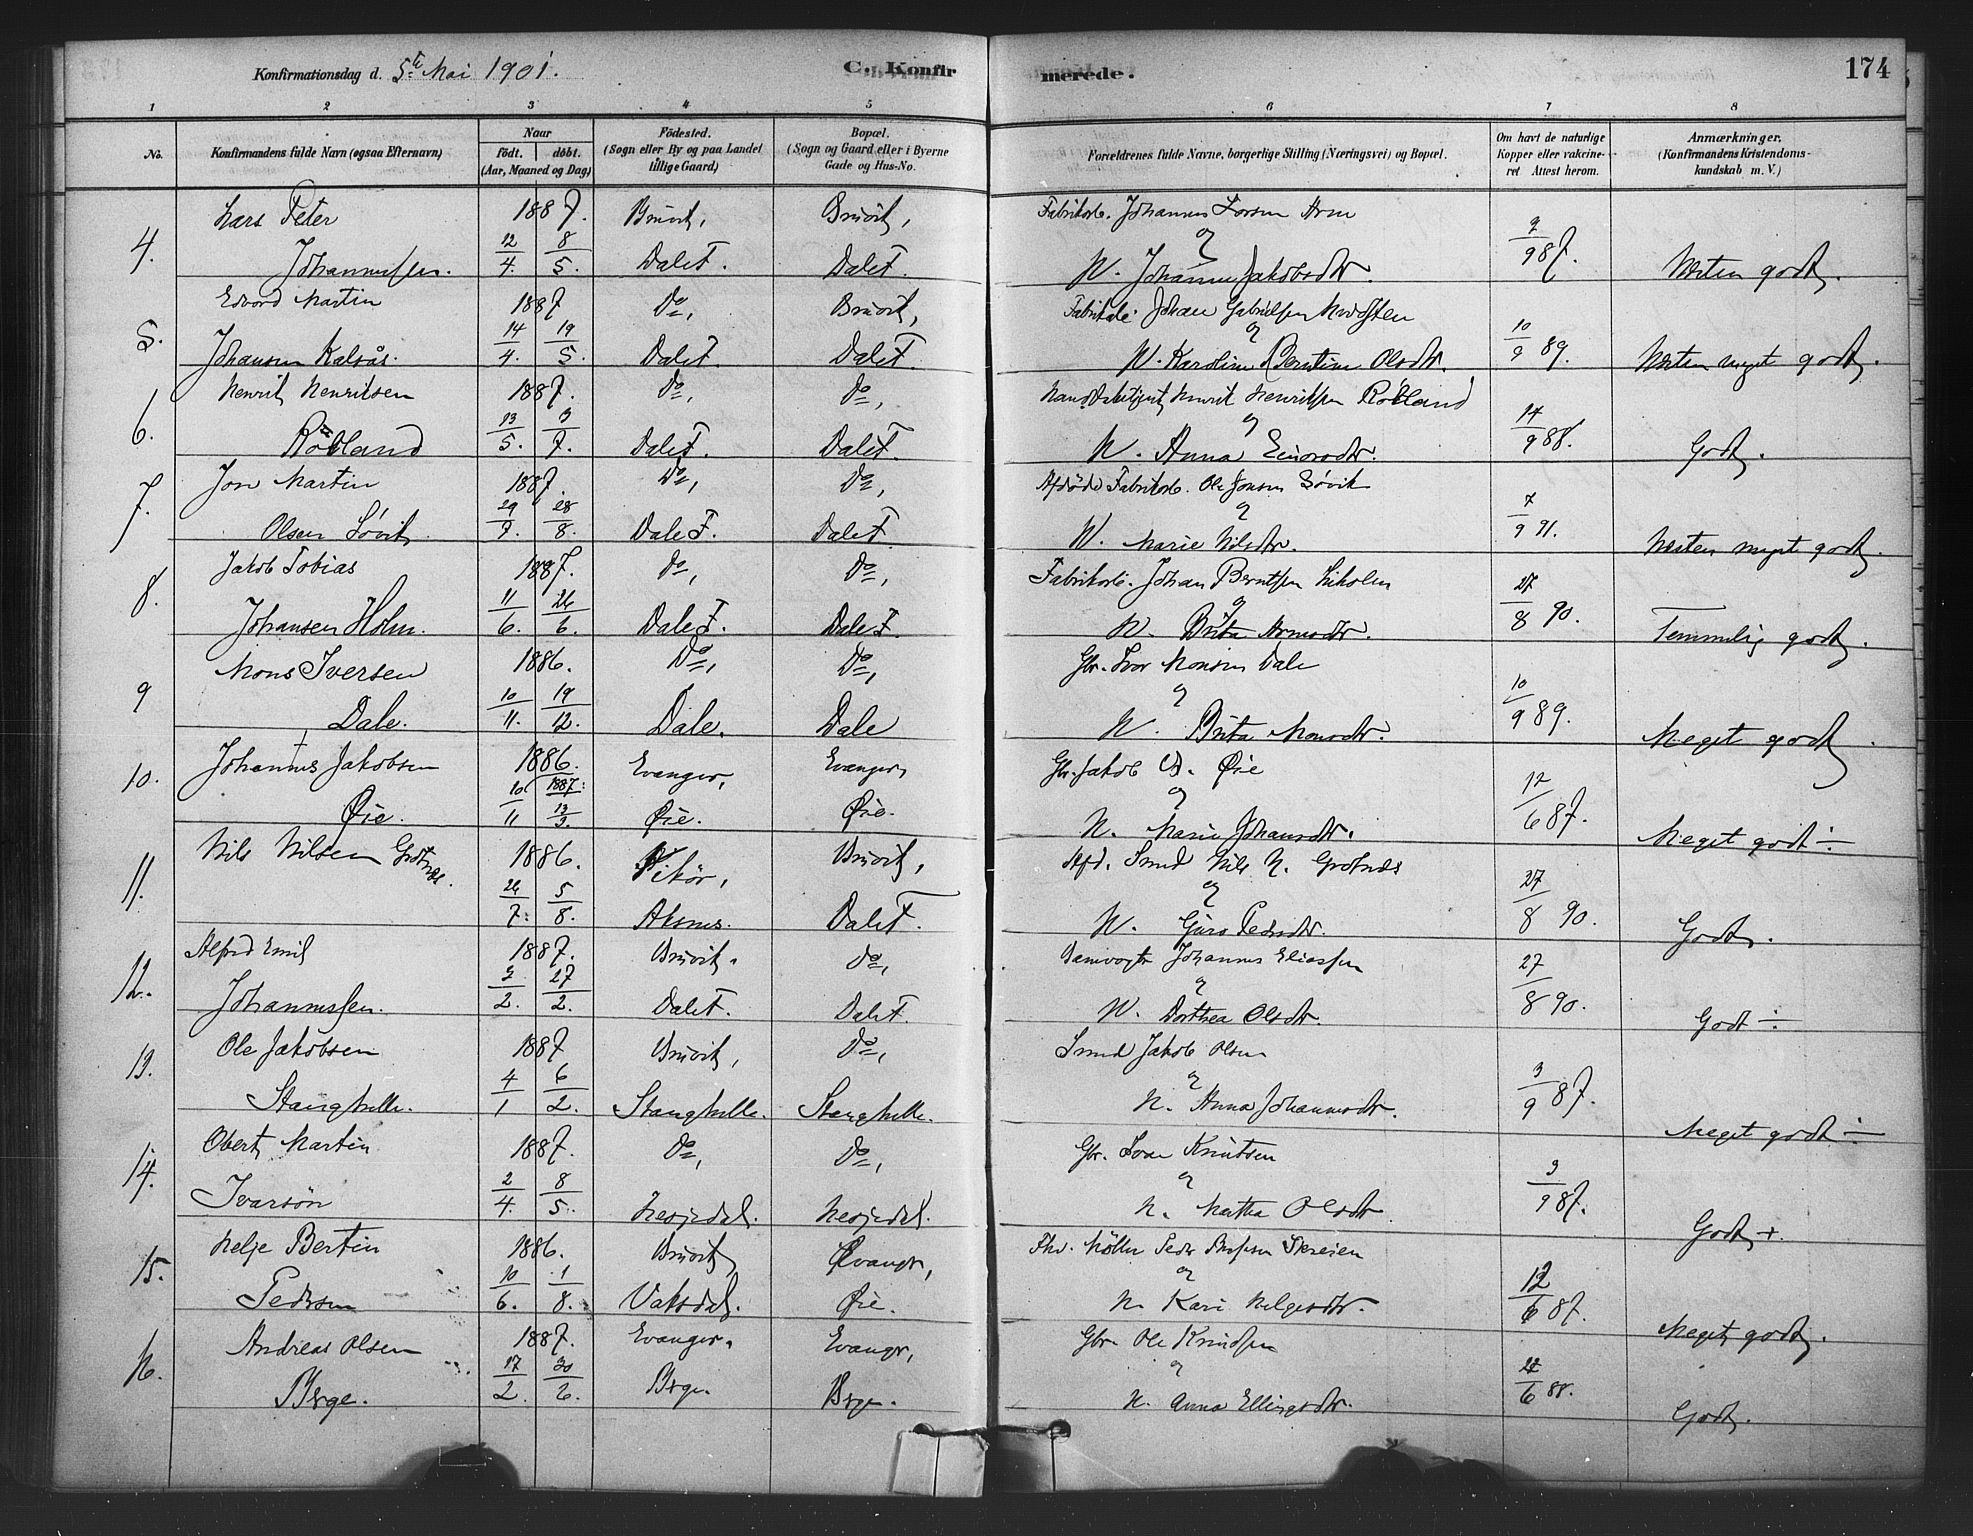 Konfirmationsdag d. 5te Mai 1901. C. Konfirmerede. 174
1 2 3 4 5 6 7 8
No. Konfirmandens fulde Navn (ogsaa Efternavn) Naar født. døbt. (Aar, Maaned og Dag) Fødested. (Sogn eller By og paa Landet tillige Gaard) Bopæl. (Sogn og Gaard eller i Byerne Gade og Hus-No. Forældrenes fulde Navne, borgerlige Stilling (Næringsvei) og Bopæl. Om havt de naturlige Kopper eller vakcineret Attest herom. Anmærkninger. (Konfirmandens Kristendomskundskab m. V.)
Lars Peter 1887. Bruvik, Bruvik, Fabrikarb. Johannes Larsen
4. Johannessen. 12/4. 8/5. Dale F. Dale F. og H. Johanne Jakobsdtr. 2/9 87. Næsten godt.
Edvard Martin 1887 Do, Bruvik, Johan Gabrielsen
5. Johansen Kalsås. 14/4. 19/5. Dale F. Dale F. og H. Karoline Berntine Olsdtr. 10/9 89. Næsten meget godt.
Henrik Henriksen 1887. Do, Do, Henrik Henriksen Rödland
6. Rödland 13/5. 3/7. Dale F. Dale F. og H. Anna Einarsdtr. 14/9 88. Godt.
Jon Martin 1887. Do, Do, Afdöde Fabrikarb. Ole Jonsen Søvik
7. Olsen Søvik 29/7. 28/8. Dale F. Dale F. og H. Marie Nilsdtr. 7/9 91. Næsten meget godt.
Jakob Tobias 1887. Do, Do, Fabrikarb. Johan Berntsen
8. Johansen Holm. 11/6. 26/6. Dale F. Dale F. og H. Brita Arnesdtr. 27/8 90. Temmelig godt.
Mons Iversen 1886. Do, Do, Gbr. Ivar Monsen Dale
9 Dale. 10/11. 19/12. Dale. Dale og H. Brita Monsdtr. 10/9 89. Meget godt.
Johannes Jakobsen 1886. Evanger, Evanger, Gbr. Jakob Øie
10. Øie. 10/11 1887: 13/3. Øie. Øie. og H. Marie Johannesdtr. 12/6 87. Meget godt ÷
Nils Nilsen Grotnæs. 1886. Vikör, Bruvik, Afd. Smed Nils N. Grotnæs
11. 26/7. 5/8. Aksnes. Dale F. og H. Guro Pedersdtr. 27/8 90. Godt.
Alfred Emil 1887. Bruvik. Do, Johannes Eliassen
12. Johannessen. 3/2. 27/2. Dale F. Dale F. og H. Dorthea Olsdtr. 27/8 90. Godt ÷
Ole Jakobsen 1887 Bruvik, Do, Smed Jakob Olsen
13. Stanghelle. 4/1 6/2. Stanghelle. Stanghelle. og H. Anna Johannesdtr. 3/9 87. Meget godt ÷
Obert Martin 1887. Do, Do, Gbr. Ivar Knutsen
14. Ivarsön 2/4. 8/5. Hesjedal. Hesjedal. og H. Martha Olsdtr 3/9 87. Godt +.
Helje Bertin 1886. Bruvik, Evanger, Möller Peder Skreien
15. Pedersen 10/6. 1/8. Vaksdal. Øie. og H. Kari Helgesdtr. 12/6 87. Meget godt.
Andreas Olsen 1887. Evanger. Evanger, Gbr. Ole Knudsen
16. Berge. 17/2. 30/6. Berge. Berge. og H. Anna Ellingsdtr. 6 88. Godt.